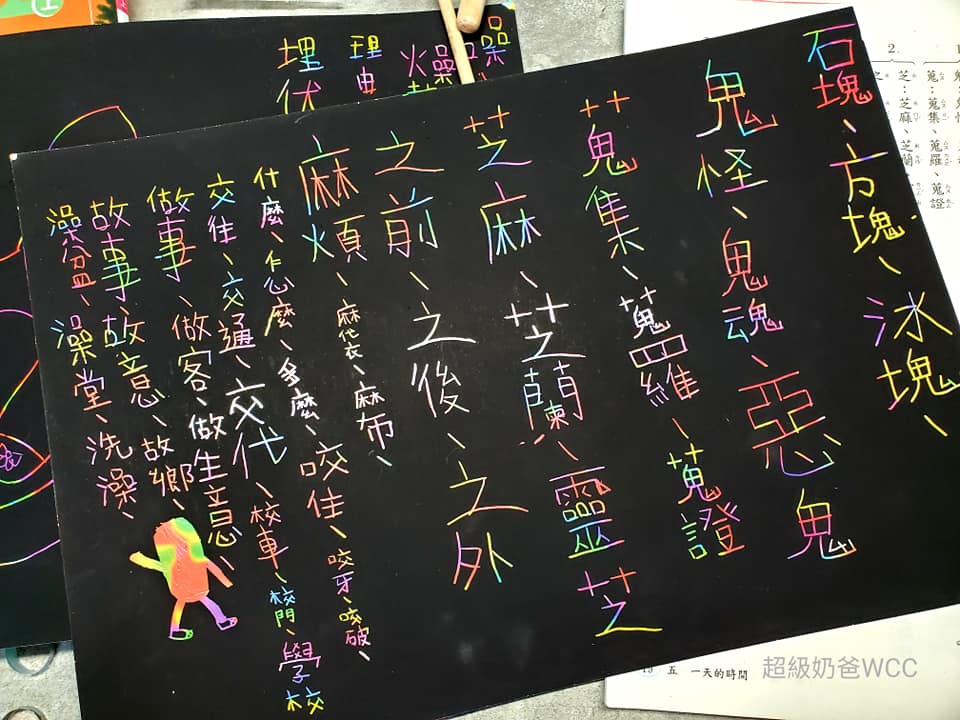 石塊、方塊、冰塊、
鬼怪、鬼魂、惡鬼
蒐集、蒐羅、蒐證
芝麻、芝蘭、靈芝
之前、之後、之外
麻煩、麻袋、麻布、
什麼、怎麼、多麼、咬住、咬牙、咬破、
交往、交通、交代、校車、校門、學校
做事、做客、做生意、
故事、故意、故鄉、
澡盆、澡堂、洗澡、
理由
埋伏
2.
蒐：蒐集、蒐羅、蒐證
芝麻、芝蘭
五 一天的時間
超級奶爸WCC